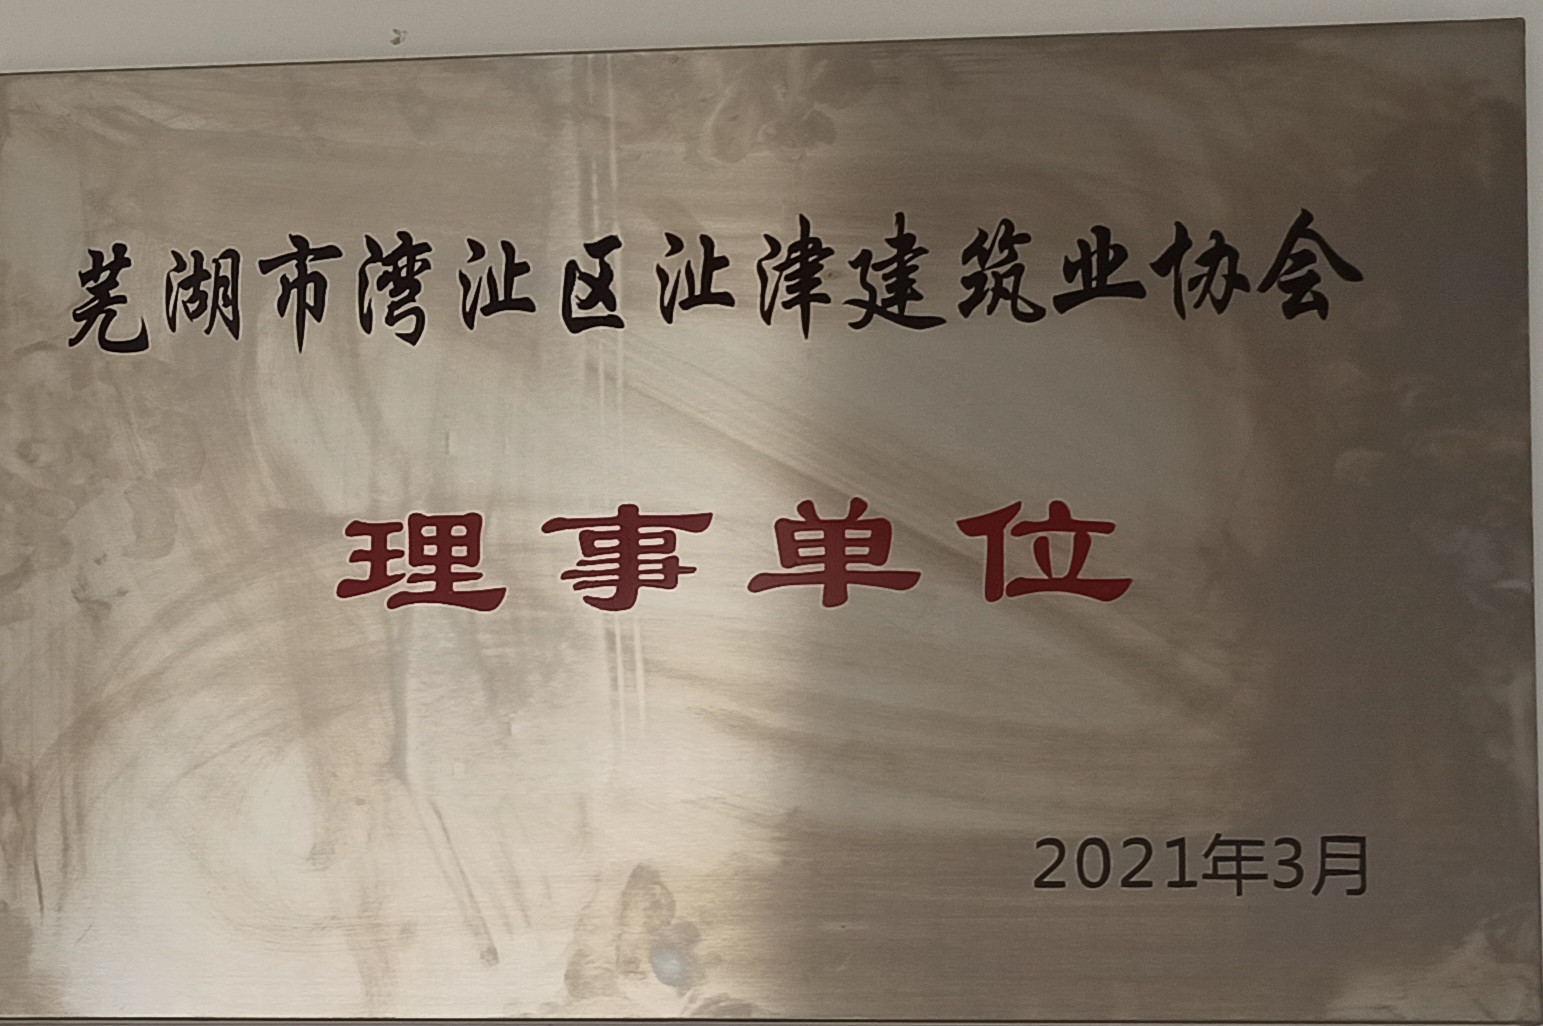 芜湖市湾沚区沚津建筑业协会
理事单位
2021年3月